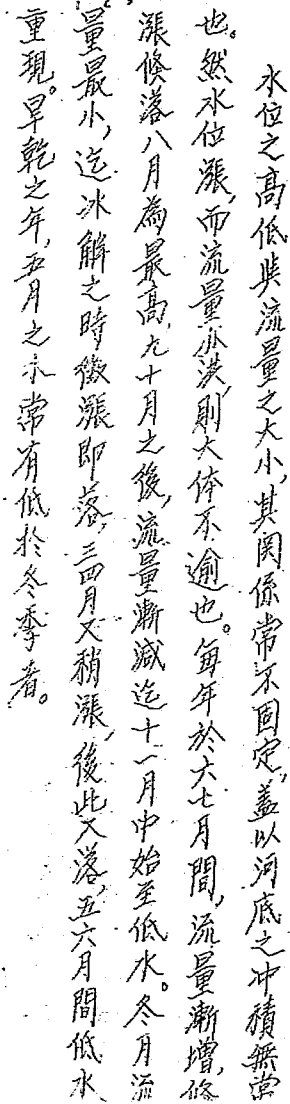 水位之高低與流量之大小，其関係常不固定，蓋以河底之冲積無常
也。然水位漲，而流量亦洪，則大体不逾也。每年於六七月間，流量漸增，倏
漲倏落八月為最高，九十月之後，流量漸減迄十一月中始至低水。冬月流
量最小，迄冰解之時微漲即落，三四月又稍漲，後此又落，五六月間低水
重現。旱乾之年，五月之水常有低於冬季者。